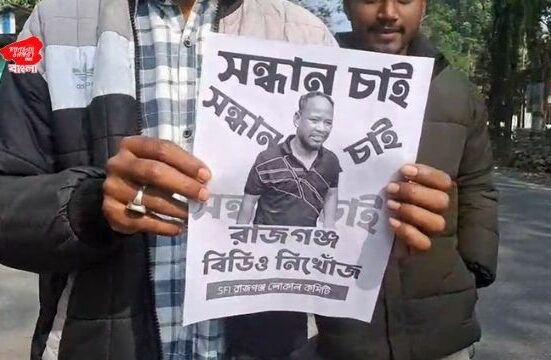 বাংলা
সন্ধান চাই
সন্ধান চাই
সন্ধান চাই
রাজগঞ্জ
বিডিও নিখোঁজ
SFI রাজগঞ্জ লোকাল কমিটি